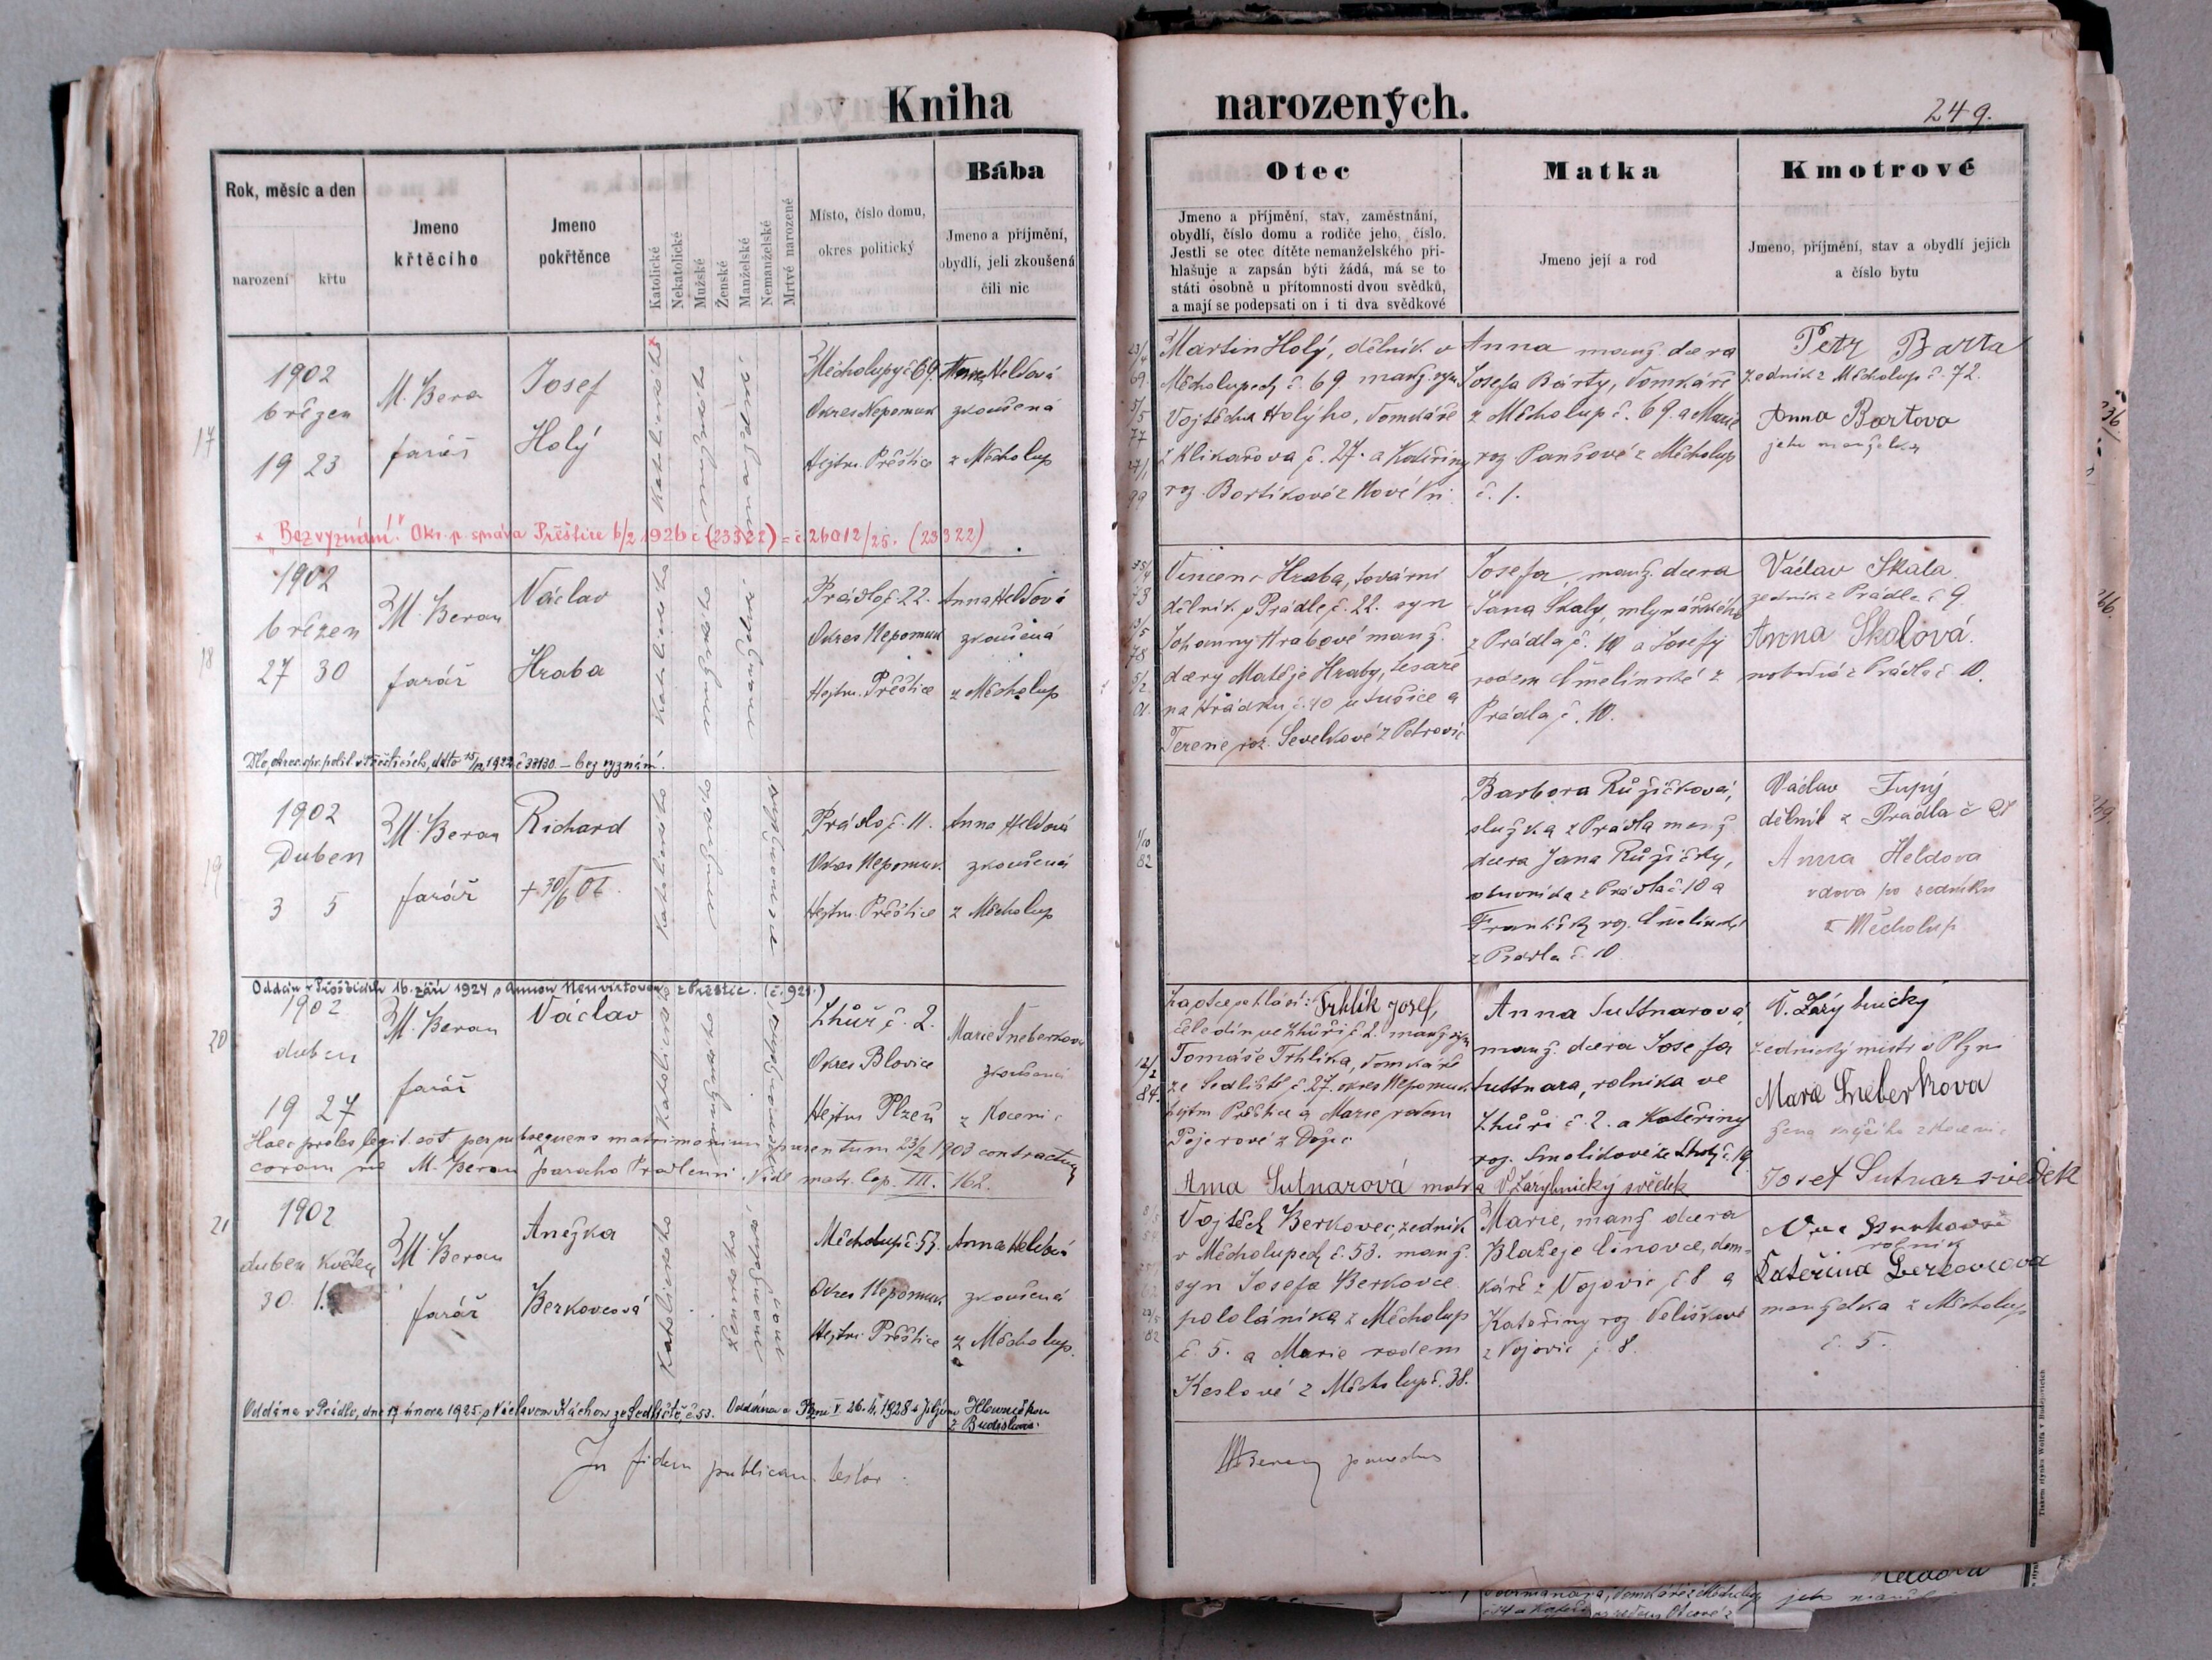 Kniha
narozených.
249.
Rok, měsíc a den
narození křtu
Jmeno
křtěcího
Jmeno
pokřtěnce
Katolické
Nekatolické
Mužské
Ženské
Manželské
Nemanželské
Mrtvé narozené
Místo, číslo domu,
okres politický
Bába
Jmeno a příjmění,
obydlí, jeli zkoušená
čili nic
Otec
Jmeno a příjmění, stav, zaměstnání,
obydlí, číslo domu a rodiče jeho, číslo.
Jestli se otec dítěte nemanželského při-
hlašuje a zapsán býti žádá, má se to
státi osobně u přítomnosti dvou svědků,
a mají se podepsati on i ti dva svědkové
Matka
Jmeno její a rod
Kmotrové
Jmeno, příjmění, stav a obydlí jejich
a číslo bytu
17
1902
březen
19 23
M. Beran
farář
Josef
Holý
katolického
mužského
manželské
Měcholupy č 69.
Okres Nepomuk
Hejtm. Přeštice
Anna Heldová
zkoušená
z Měcholup
Martin Holý, dělník v
Měcholupech č. 69 manž. syn
Vojtěcha Holýho, domkáře
z Klikařova č. 27. a Kateřiny
roz. Bartíkové z Nové Vsi
Anna manž. dcera
Josefa Bárty, domkáře
z Měcholup č. 69. a Marie
roz. Panšové z Měcholup
č. 1.
Petr Barta
zedník z Měcholup č. 72.
Anna Bartova
jeho manželka
× "Bez vyznání." Okr. p. správa Přeštice 6/2 1926 č (23322) = č 26012/25. (23322)
18
1902
březen
27 30
M. Beran
farář
Václav
Hraba
katolického
mužského
manželské
Prádlo č. 22.
Okres Nepomuk
Hejtm. Přeštice
Anna Heldová
zkoušená
z Měcholup
Vincenc Hraba, tovární
dělník v Prádle, č. 22. syn
Johanny Hrabové manž.
dcery Matěje Hraby, tesaře
na Hrádku č. 40 u Sušice a
Terezie roz. Sevelkové z Petrovic
Josefa, manž. dcera
Jana Skaly, mlynářského
z Prádla č. 10 a Josefy
rodem Čmelínské z
Prádla č. 10.
Václav Skala
zedník z Prádla č 9
Anna Skalová.
z Prádla č 10.
Dle okres. spr. polit. v Přešticích, ddto 15/12 1922 č 33130. – bez vyznání.
19
1902
Duben
3 5
M. Beran
farář
Richard
+ 30/6 02.
katolického
mužského
nemanželské
Prádlo, č. 11.
Okres Nepomuk.
Hejtm. Přeštice
Anna Heldová
zkoušená
z Měcholup
1/10
82
Barbora Růžičková,
služka z Prádla manž
dcera Jana Růžičky,
obuvníka z Prádla č. 10 a
Františky roz. Čmelínské
z Prádla č. 10
Václav Tupý
dělník z Prádla č 27
Anna Heldova
vdova po zedníku
z Měcholup
Oddán v Přešticích 16. září 1924 s Annou Neuvirtovou z Přeštic. (č. 921.)
20
1902
duben
19 27
M. Beran
farář
Václav
Katolického
mužského
nemanželské
Lhůř č. 2.
Okres Blovice
Hejtm Plzeň
Marie Šneberkova
zkoušená
z Kocenic
12/2
84.
Za otce se hlásí: Trhlík Josef,
čeledín ve Lhůři č 2. manž. syn
Tomáše Trhlíka, domkáře
ze Sedliště č. 27. okres Nepomuk
hejtm Přeštice a Marie rodem
Pojerové z Dožic
Anna Suttnarová,
manž. dcera Josefa
Suttnara, rolníka ve
Lhůři č. 2. a Kateřiny
roz. Smolíkové ze Lhoty č. 19
V. Zárybnický
zednický mistr v Plzni
Marie Šneberkova
žena krejčího z Kocenic
Josef Sutnar svědek
Anna Sutnarová matka V Zárybnický svědek
Haec proles legit. est per subsequens matrimonium parentum 23/2 1903 contractum
coram me M. Beran parocho Pradlensi. Vide matr. Cop. III. 162.
21
1902
duben květen
30. 1.
M. Beran
farář
Anežka
Berkovcová
Katolického
ženského
manželské
Měcholupy č. 53.
Okres Nepomuk
Hejtm Přeštice
Anna Heldová
zkoušená
z Měcholup.
Vojtěch Berkovec, zedník
v Měcholupech č. 53. manž.
syn Josefa Berkovce
pololáníka z Měcholup
č. 5. a Marie rodem
Keslové z Měcholup č. 38.
Marie, manž dcera
Blažeje Činovce, dom-
káře z Vojovic č 8 a
Kateřiny roz Veliškové
z Vojovic č 8.
rolník
Kateřina Berkovcova
manželka z Měcholup
č. 5.
Oddána v Prádle, dne 17. února 1925. s Václavem Káchou ze Sedliště, č. 53.
In fidem publicam testor.
M Beran parochus
Tiskem styskn Wolfa v Budějovicích